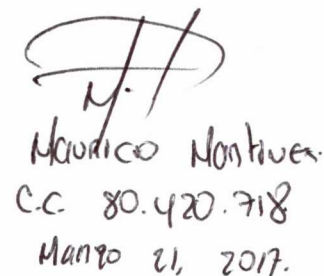 M.
Mauricio Martinez.
C.C. 80.420.718
Marzo 21, 2017.